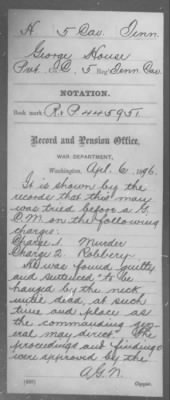 H 5 Cav. Tenn.
George House
Pvt. Co. 5 Reg't Tenn Cav.
NOTATION.
Book mark R & P 445951
Record and Pension Office,
WAR DEPARTMENT,
Washington, Apl. 6, 1896.
It is shown by the
records that this man
was tried before a G.
C. M. on the following
charges:
Charge 1. Murder
Charge 2. Robbery
He was found guilty
and sentenced to be
hanged by the neck
until dead, at such
time and place as
the commanding gen-
eral may direct. The
proceedings and findings
were approved by the
(499) Copyist.